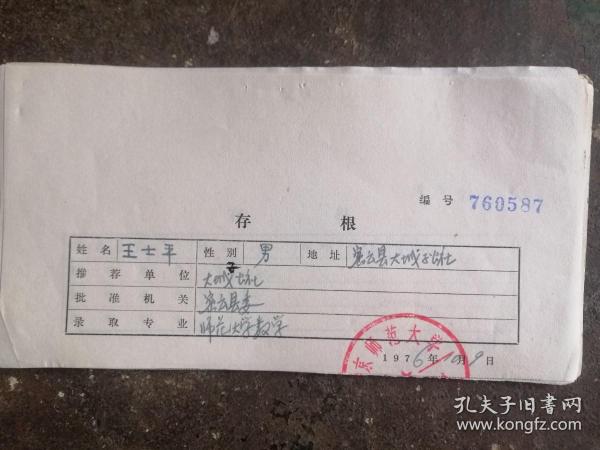 编号 760587
存根
姓名 王士平 性别 男 地址 密云县大城子公社
推荐单位 大城子公社
批准机关 密云县委
录取专业 师范大学数学
京师范大学
1976年10月9日
孔夫子旧书网
www.kongfz.com